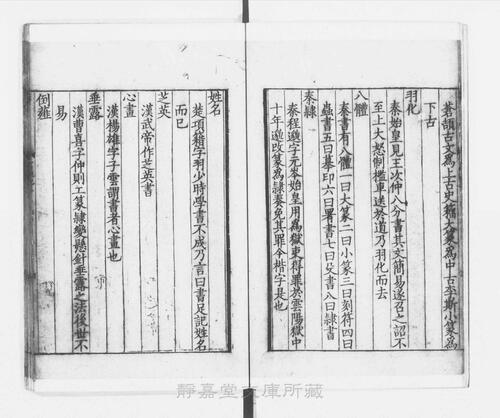 蒼頡古文爲上古史籀大篆爲中古李斯小篆爲
下古
羽化
秦始皇見王次仲八分書其文簡易遂召之詔不
至上大怒制檻車送於道乃羽化而去
八體
秦書有八體一曰大篆二曰小篆三曰刻符四曰
蟲書五曰摹印六曰署書七曰殳書八曰隸書
秦隸
秦程邈字元岑始皇用爲獄吏得罪於雲陽獄中
十年邈改篆爲隸奏免其罪令楷字是也
姓名
楚項籍字羽少時學書不成乃言曰書足記姓名
而已
芝英
漢武帝作芝英書
心畫
漢楊雄字子雲謂書者心畫也
垂露
漢曹喜字仲則工篆隸變懸針垂露之法後世不
易
倒薤
靜嘉堂文庫所藏